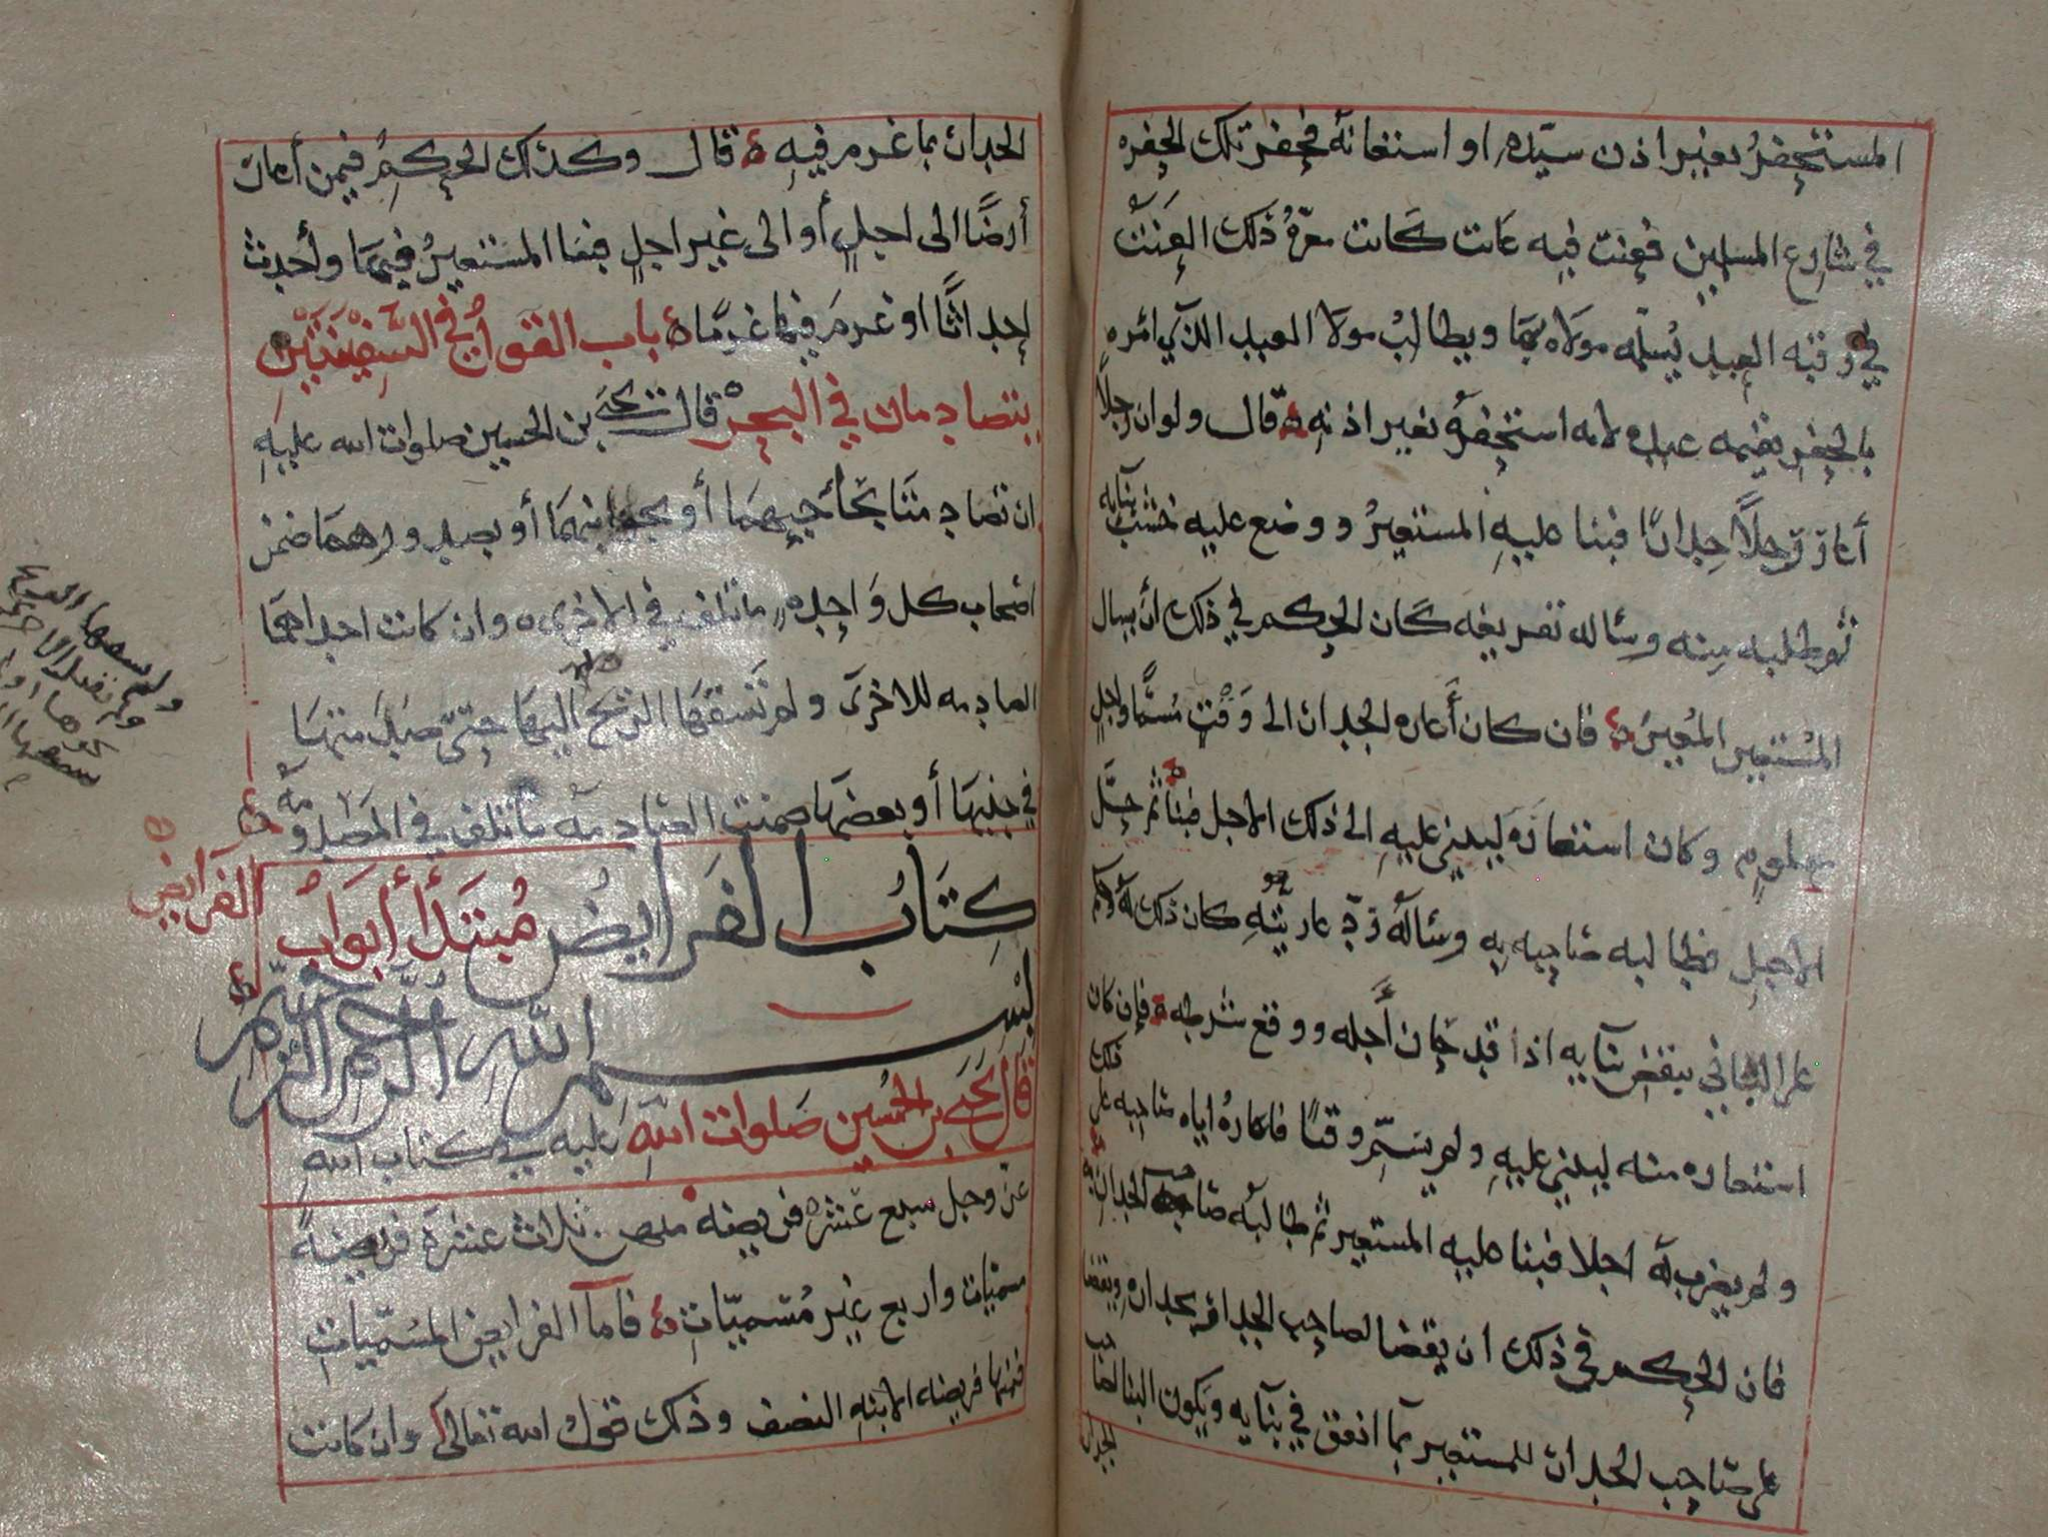 المستحفر بغير اذن سيده او استعانه فحفر تلك الحفره
في شارع المسلمين فعنت فيه عانت كانت معرة ذلك العنت
في رقبه العبد يسلمه مولاه بها ويطالب مولا العبد الذي امره
بالحفر بقيمه عبده لانه استحفره بغير اذنه قال ولو ان رجلاً
أعار رجلاً جداراً فبنا عليه المستعير ووضع عليه خشب بنآيه
ثم طلبه منه وسأله تفريغه كان الحكم في ذلك أن يسال
المستعير المعير فان كان أعاره الجدار الى وقت مسمّا واجل
معلوم وكان استعاره ليبني عليه الى ذلك الاجل فبنا ثم حل
الاجل فطالبه صاحبه به وسأله رد عاريته كان ذلك له وحكم
على الباني بنقض بنآيه اذا قد حان أجله ووقع شرطه فإن كان
استعاره منه ليبني عليه ولم يسمّ وقتاً فاعاره اياه صاحبه على ذلك
ولم يضرب له اجلا فبنا عليه المستعير ثم طالبه صاحب الجدار به
فان الحكم في ذلك ان يقضا لصاحب الجدار بجداره ويقضا
على صاحب الجدار للمستعير بمآ انفق في بنآيه ويكون البنا لصاحب
الجدار
الجدار بما غرم فيه قال وكذلك الحكم فيمن أعار
أرضًا الى اجلٍ أو الى غير اجلٍ فبنا المستعير فيها وأحدث
إحداثًا او غرم فيها غرمًا باب القول في السفينتين
يتصادمان في البحر قال يحيى بن الحسين صلوات الله عليه
ان تصادمتا بحأجيهما أو بجوانبهما أو بصدورهما ضمن
اصحاب كل واحده ما تلف في الاخرى وان كانت احداهما
الصادمه للاخرى ولم تسقها الريح اليها حتى صدمتها
في جنبها أو بعضها ضمنت الصادمه ما تلف في المصدومه
كتاب الفرايض مبتدأ أبواب
الفرآيض
بسم الله الرحمن الرحيم
قال يحيى بن الحسين صلوات الله عليه في كتاب الله
عز وجل سبع عشره فريضه منهن ثلاث عشرة فريضةً
مسمّيات واربع غير مُسميّات فامآ الفرايض المسمّيات
فمنها فريضه الابنه النصف وذلك قول الله تعالى وان كانت